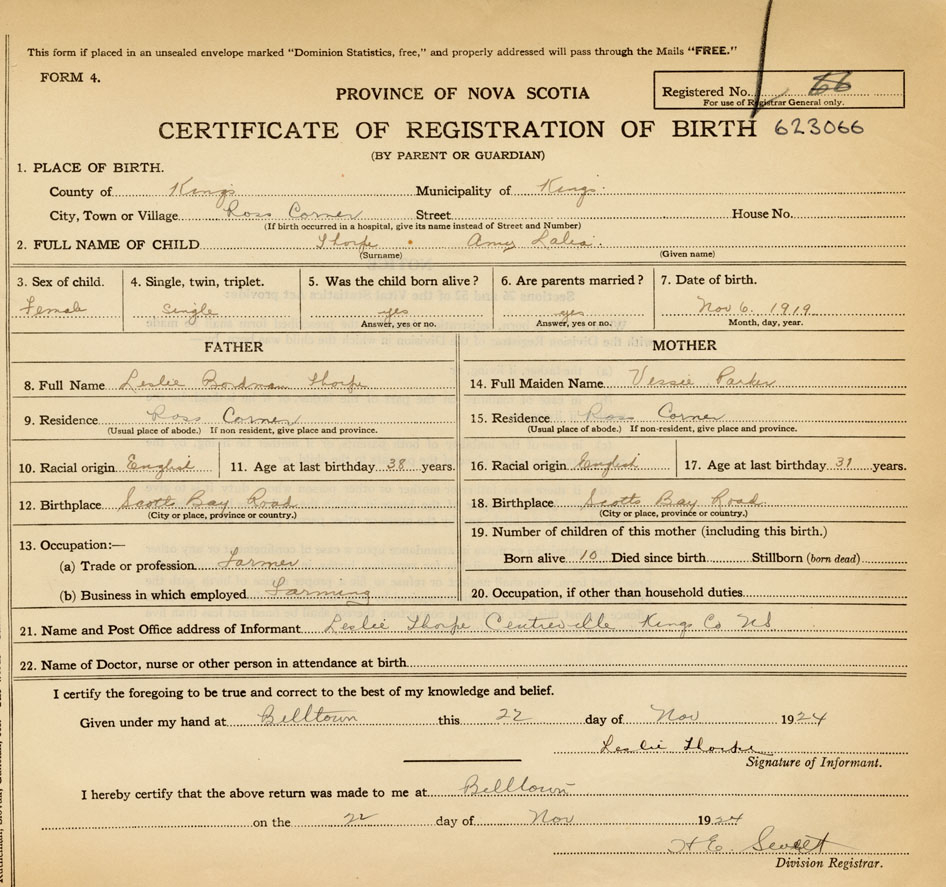 This form if placed in an unsealed envelope marked "Dominion Statistics, free," and properly addressed will pass through the Mails "FREE."
FORM 4.
Registered No. 66
For use of Registrar General only.
PROVINCE OF NOVA SCOTIA
CERTIFICATE OF REGISTRATION OF BIRTH 623066
(BY PARENT OR GUARDIAN)
1. PLACE OF BIRTH.
County of Kings Municipality of Kings
City, Town or Village Ross Corner Street House No.
(If birth occurred in a hospital, give its name instead of Street and Number)
2. FULL NAME OF CHILD Thorpe Amy Lalia
(Surname) (Given name)
3. Sex of child. 4. Single, twin, triplet. 5. Was the child born alive? 6. Are parents married? 7. Date of birth.
Female Single yes yes Nov 6. 1919
Answer, yes or no. Answer, yes or no. Month, day, year.
FATHER MOTHER
8. Full Name Leslie Bordman Thorpe 14. Full Maiden Name Vessie Parker
9. Residence Ross Corner 15. Residence Ross Corner
(Usual place of abode.) If non resident, give place and province. (Usual place of abode.) If non-resident, give place and province.
10. Racial origin English 11. Age at last birthday 38 years. 16. Racial origin English 17. Age at last birthday 31 years.
12. Birthplace Scotts Bay Road 18. Birthplace Scotts Bay Road
(City or place, province or country.) (City or place, province or country.)
13. Occupation:— 19. Number of children of this mother (including this birth.)
(a) Trade or profession Farmer Born alive 10 Died since birth Stillborn (born dead)
(b) Business in which employed Farming 20. Occupation, if other than household duties
21. Name and Post Office address of Informant Leslie Thorpe Centreville Kings Co NS
22. Name of Doctor, nurse or other person in attendance at birth
I certify the foregoing to be true and correct to the best of my knowledge and belief.
Given under my hand at Billtown this 22 day of Nov 1924
Leslie Thorpe
Signature of Informant.
I hereby certify that the above return was made to me at Billtown
on the 22 day of Nov 1924
H E
Division Registrar.